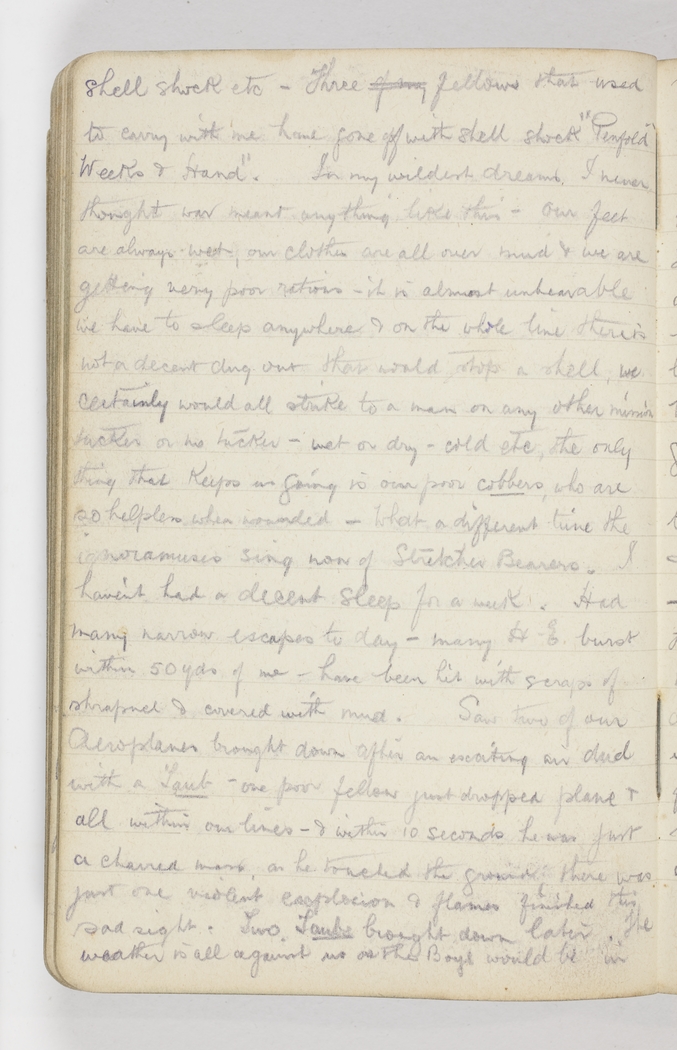 shell shock etc - Three of my fellows that used
to carry with me have gone off with shell shock "Penfold
Weeks & Hand". In my wildest dreams, I never
thought war meant anything like this - Our feet
are always wet, our clothes are all over mud & we are
getting very poor rations - it is almost unbearable
we have to sleep anywhere & on the whole line there is
not a decent dug out that would stop a shell, we
certainly would all strike to a man on any other mission
tucker or no tucker - wet or dry - cold etc, the only
thing that keeps us going is our poor cobbers, who are
so helpless when wounded - What a different tune the
ignoramuses sing now of Stretcher Bearers. I
haven't had a decent sleep for a week. Had
many narrow escapes to day - many H.E. burst
within 50 yds of me - have been hit with scraps of
shrapnel & covered with mud. Saw two of our
Aeroplanes brought down after an exciting air duel
with a Taub - one poor fellow just dropped plane &
all within our lines - & within 10 seconds he was just
a charred mass, as he touched the ground there was
just one violent explosion & flames finished this
sad sight. Two Taubs brought down later. The
weather is all against us as the Boys would be in